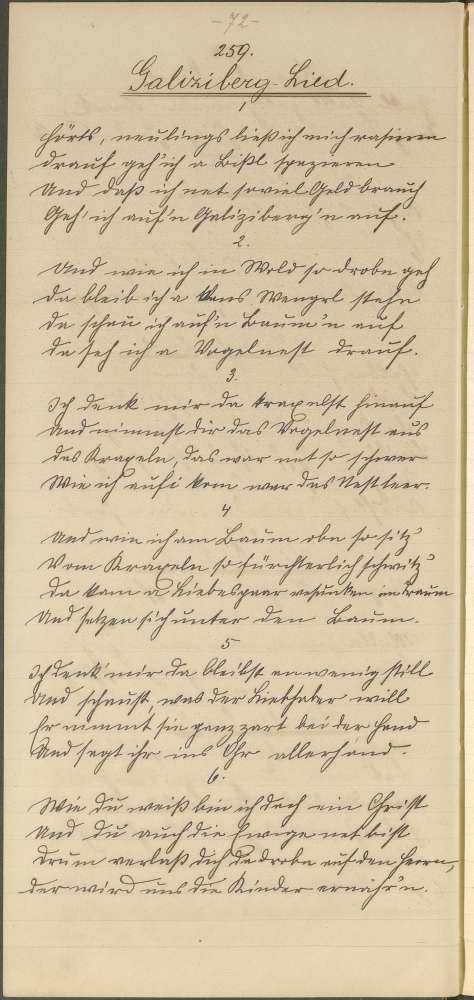 - 72 -
259.
Galiziberg-Lied.
1
Hörts, neulings ließ ich mich rasieren
drauf geh' ich a Bißl spazieren
Und daß ich net soviel Geld brauch
Geh' ich auf'n Galiziberg'n auf.
2.
Und wie ich in Wold so drobn geh
da bleib ich a Wengerl stehn
da schau ich auf'n Baum'n auf
da seh ich a Vogelnest drauf.
3.
Ich denk mir da kraxelst hinauf
Und nimmst dir das Vogelnest aus
das Kraxeln, das war net so schwer
Wie ich aufi kom war das Nest leer.
4
Und wie ich am Baum obn so sitz'
Vom Kraxeln so fürchterlich schwitz'
da kam a Liebespaar versunken im Traum
Und setzen sich unter den Baum.
5
Ich denk' mir da bleibst en wenig still
Und schaust, was der Liebhaber will
Er nimmt sie ganz zart bei der Hand
Und sagt ihr ins Ohr allerhand.
6.
Wie du weiß bin ich doch ein Christ
Und du auch die Ewige net bist
drum verlaß dich da drobn auf den Herrn,
der wird uns die Kinder ernähr'n.